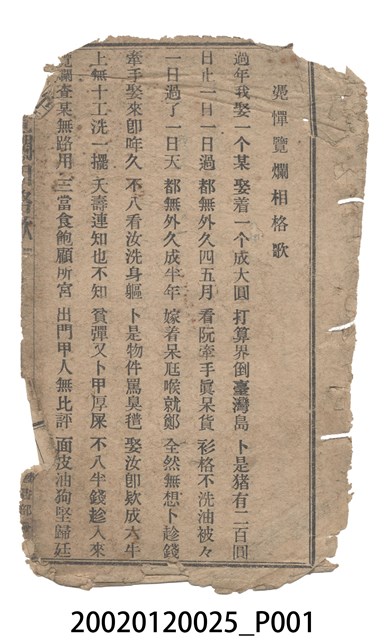 憚覽爛相格歌
過年我娶一个某 娶着一个成大圓 打算界倒臺灣島 卜是猪有二百圓
日止一日一日過 都無外久四五月 看阮牽手眞呆貨 衫格不洗油被々
一日過了一日天 都無外久成半年 嫁着呆尫喉就鄭 全然無想卜趁錢
牽手娶來卽年久 不八看汝洗身軀 卜是物件罵臭 娶汝卽欵成大牛
上無十工洗一擺 夭壽連知也不知 貧彈又卜甲厚屎 不八半錢趁入來
爛查某無路用 三當食飽顧所宮 出門甲人無比評 面皮油狗堅歸廷
20020120025_P001